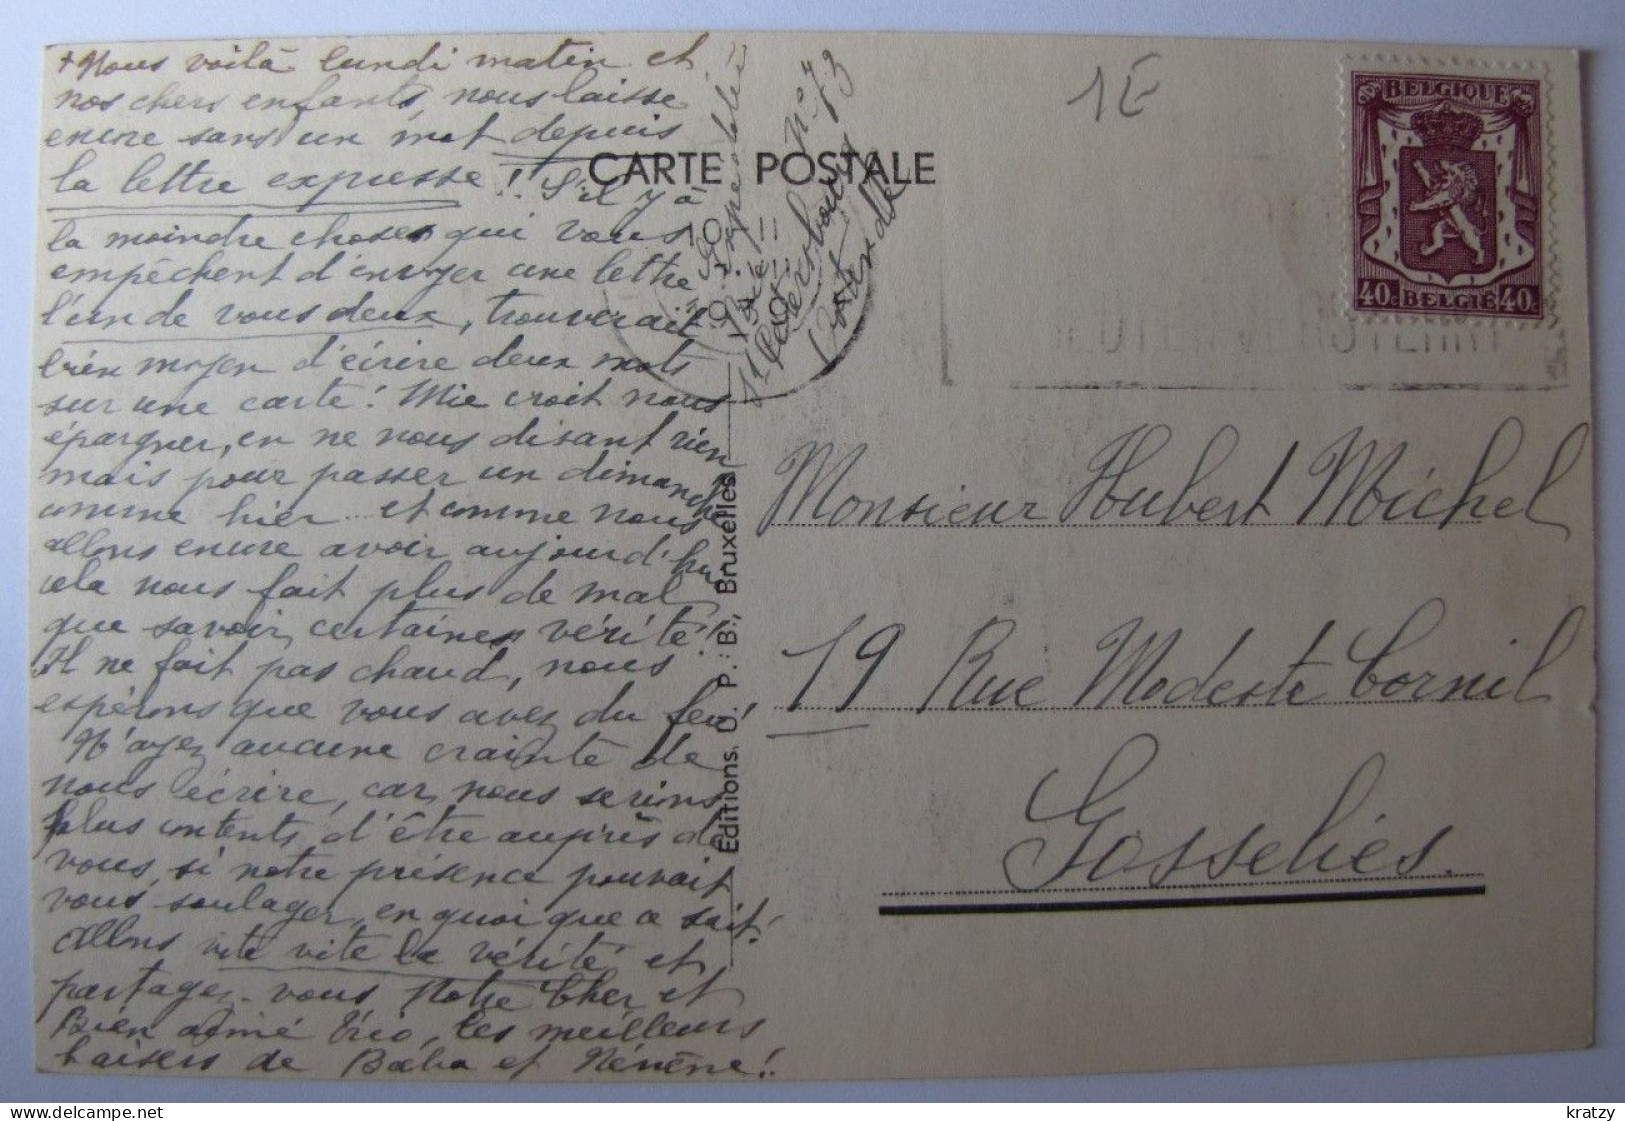 + Nous voilà lundi matin et
nos chers enfants, nous laisse
encore sans un mot depuis
la lettre expresse! S'il y a
la moindre choses qui vous
empêchent d'envoyer une lettre
l'un de vous deux, trouverait
bien moyen d'écrire deux mots
sur une carte! Mie croit nous
épargner, en ne nous disant rien
mais pour passer un dimanche
comme hier et comme nous
allons encore avoir aujourd'hui
cela nous fait plus de mal
que savoir certaines vérité!
Il ne fait pas chaud, nous
espérons que vous avez du feu!
N'ayez aucune crainte de
nous écrire, car nous serions
plus contents d'être auprès de
vous, si notre présence pouvait
vous soulager, en quoi que ce soit!
Allons vite vite la vérité et
partagez-vous Notre Cher et
Bien aimé Trio, les meilleurs
baisers de Baba et Nénène!
CARTE POSTALE
Editions. O. P. B., Bruxelles
1E
BELGIQUE
40c BELGIË 40c
Monsieur Hubert Michel
19 Rue Modeste Cornil
Gosselies.
kratzy